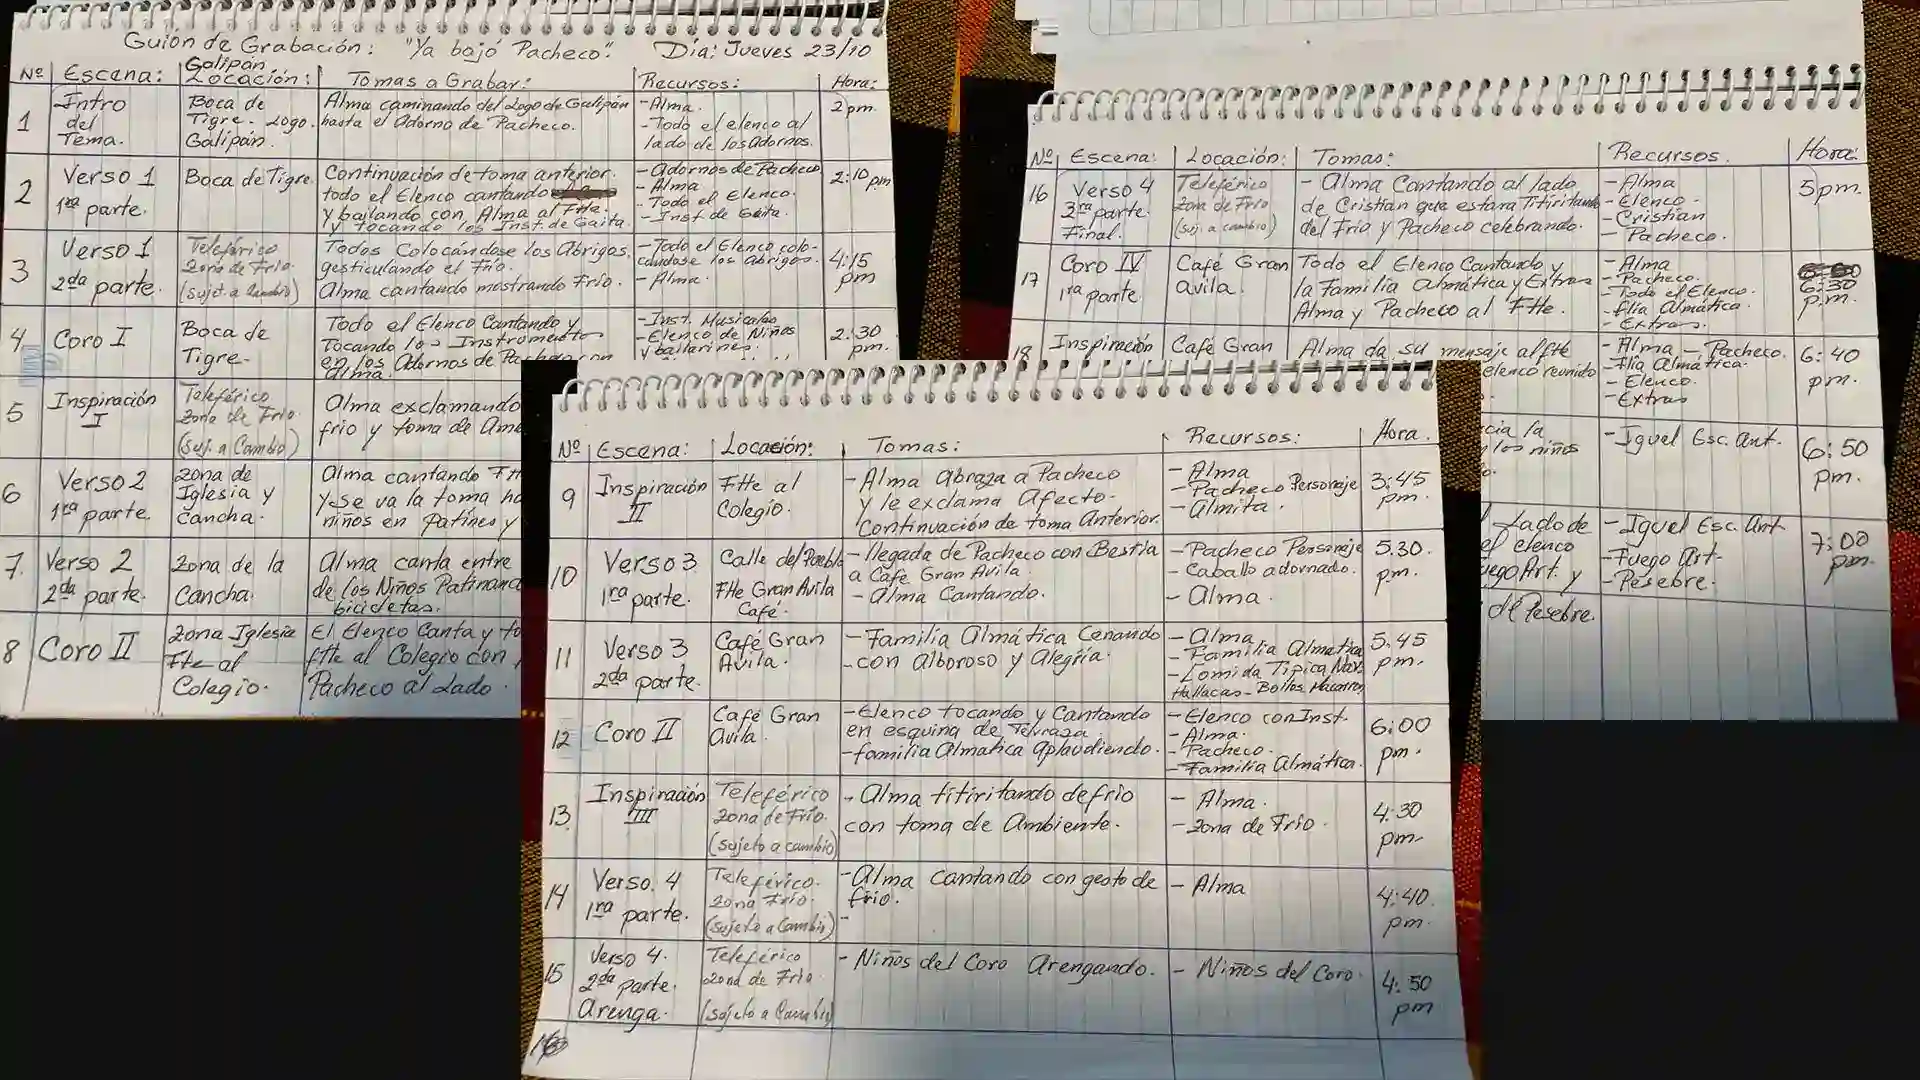 Guión de Grabación: "Ya bajó Pacheco". Día: Jueves 23/10
Galipán
Nº Escena: Locación: Tomas a Grabar: Recursos: Hora:
1 Intro del Tema. Boca de Tigre. Logo Galipán. Alma caminando del Logo de Galipán hasta el Adorno de Pacheco. -Alma. -Todo el elenco al lado de los Adornos. 2 pm.
2 Verso 1 1ra parte. Boca de Tigre. Continuación de toma anterior. todo el Elenco cantando y bailando con Alma al Ftte. y tocando los Inst. de Gaita. -Adornos de Pacheco -Alma -Todo el Elenco. -Inst. de Gaita. 2:10 pm
3 Verso 1 2da parte. Teleférico Zona de Frio. (Sujet. a Cambio) Todos Colocándose los Abrigos gesticulando el Frío. Alma cantando mostrando Frío. -Todo el Elenco colocandose los abrigos. -Alma. 4:15 pm
4 Coro I Boca de Tigre- Todo el Elenco Cantando y Tocando los Instrumentos en los Adornos de Pacheco con Alma. -Inst. Musicales -Elenco de Niños y bailarines. 2:30 pm.
5 Inspiración I Teleférico Zona de Frio. (Suj. a Cambio) Alma exclamando frio y toma de Am
6 Verso 2 1ra parte. Zona de Iglesia y Cancha. Alma cantando Ftt y se va la toma ha niños en Patines y
7. Verso 2 2da parte. Zona de la Cancha. Alma canta entre de los Niños Patinand bicicletas.
8 Coro II Zona Iglesia Ftte al Colegio. El Elenco Canta y to ftte al Colegio con Pacheco al Lado.
Nº Escena: Locación: Tomas: Recursos: Hora.
9 Inspiración II Ftte al Colegio. -Alma Abraza a Pacheco y le exclama Afecto- Continuación de toma Anterior. -Alma -Pacheco Personaje -Almita. 3:45 pm.
10 Verso 3 1ra parte. Calle del Pueblo Ftte Gran Avila Café. -llegada de Pacheco con Bestia a Café Gran Avila. -Alma Cantando. -Pacheco Personaje -Caballo adornado. -Alma. 5.30. pm.
11 Verso 3 2da parte. Café Gran Avila. -Familia Almática Cenando -con Alboroso y Alegría. -Alma -Familia Almatica -Comida Típica Nav. Hallacas-Bollos Macarron 5.45 pm.
12 Coro II Café Gran Avila. -Elenco tocando y Cantando en esquina de Terraza -familia Almatica Aplaudiendo. -Elenco con Inst. -Alma. -Pacheco. -Familia Almática. 6:00 pm.
13 Inspiración III Teleférico Zona de Frio. (sujeto a cambio) -Alma titiritando de frio con toma de Ambiente. -Alma. -Zona de Frio. 4:30 pm.
14 Verso. 4 1ra parte. Teleférico. Zona Frio. (sujeto a Cambio) -Alma cantando con gesto de frio. - -Alma 4:40. pm.
15 Verso 4. 2da parte. Arenga. Teleférico Zona de Frio. (sujeto a Cambio) -Niños del Coro Arengando. -Niños del Coro. 4:50 pm
Nº Escena: Locación: Tomas: Recursos. Hora:
16 Verso 4 3ra parte. Final. Teleférico Zona de Frio (suj. a cambio) -Alma Cantando al lado de Cristian que estara Titiritando del Frío y Pacheco celebrando. -Alma -Elenco- -Cristian -Pacheco. 5 pm.
17 Coro IV 1ra parte. Café Gran Avila. Todo el Elenco Cantando y la Familia Almática y Extras Alma y Pacheco al Ftte. -Alma -Pacheco. -Todo el Elenco. -flia Almática. -Extras. 6:30 p.m.
18 Inspiración Café Gran Alma da su mensaje al ftte elenco reunido -Alma -Pacheco. -flia Almática. -Elenco. -Extras 6:40 pm.
cia la los niños -Igual Esc. Ant. 6:50 pm.
Lado de el elenco Fuego Art. y de Pesebre. -Igual Esc. Ant -Fuego Art- -Pesebre. 7:00 pm.